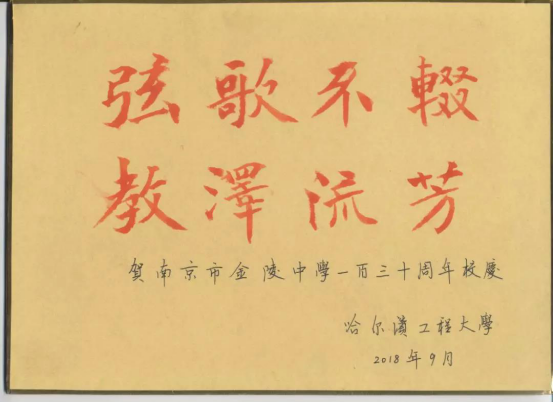 弦歌不輟
教澤流芳
賀南京市金陵中學一百三十周年校慶
哈尔濱工程大學
2018年9月